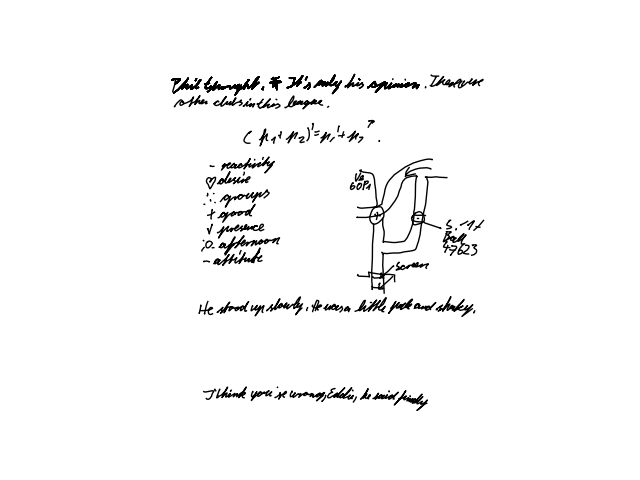 Phil thought, It's only his opinion. There are
other clubs in this league.
(p1+p2)'=p1'+p2'.
- reactivity
♡ desire
∴ groups
+ good
√ presence
afternoon
- attitude
Va
60P1
S.
Ball
47623
screen
He stood up slowly. He was a little pale and shaky.
I think you're wrong, Eddie, he said finally